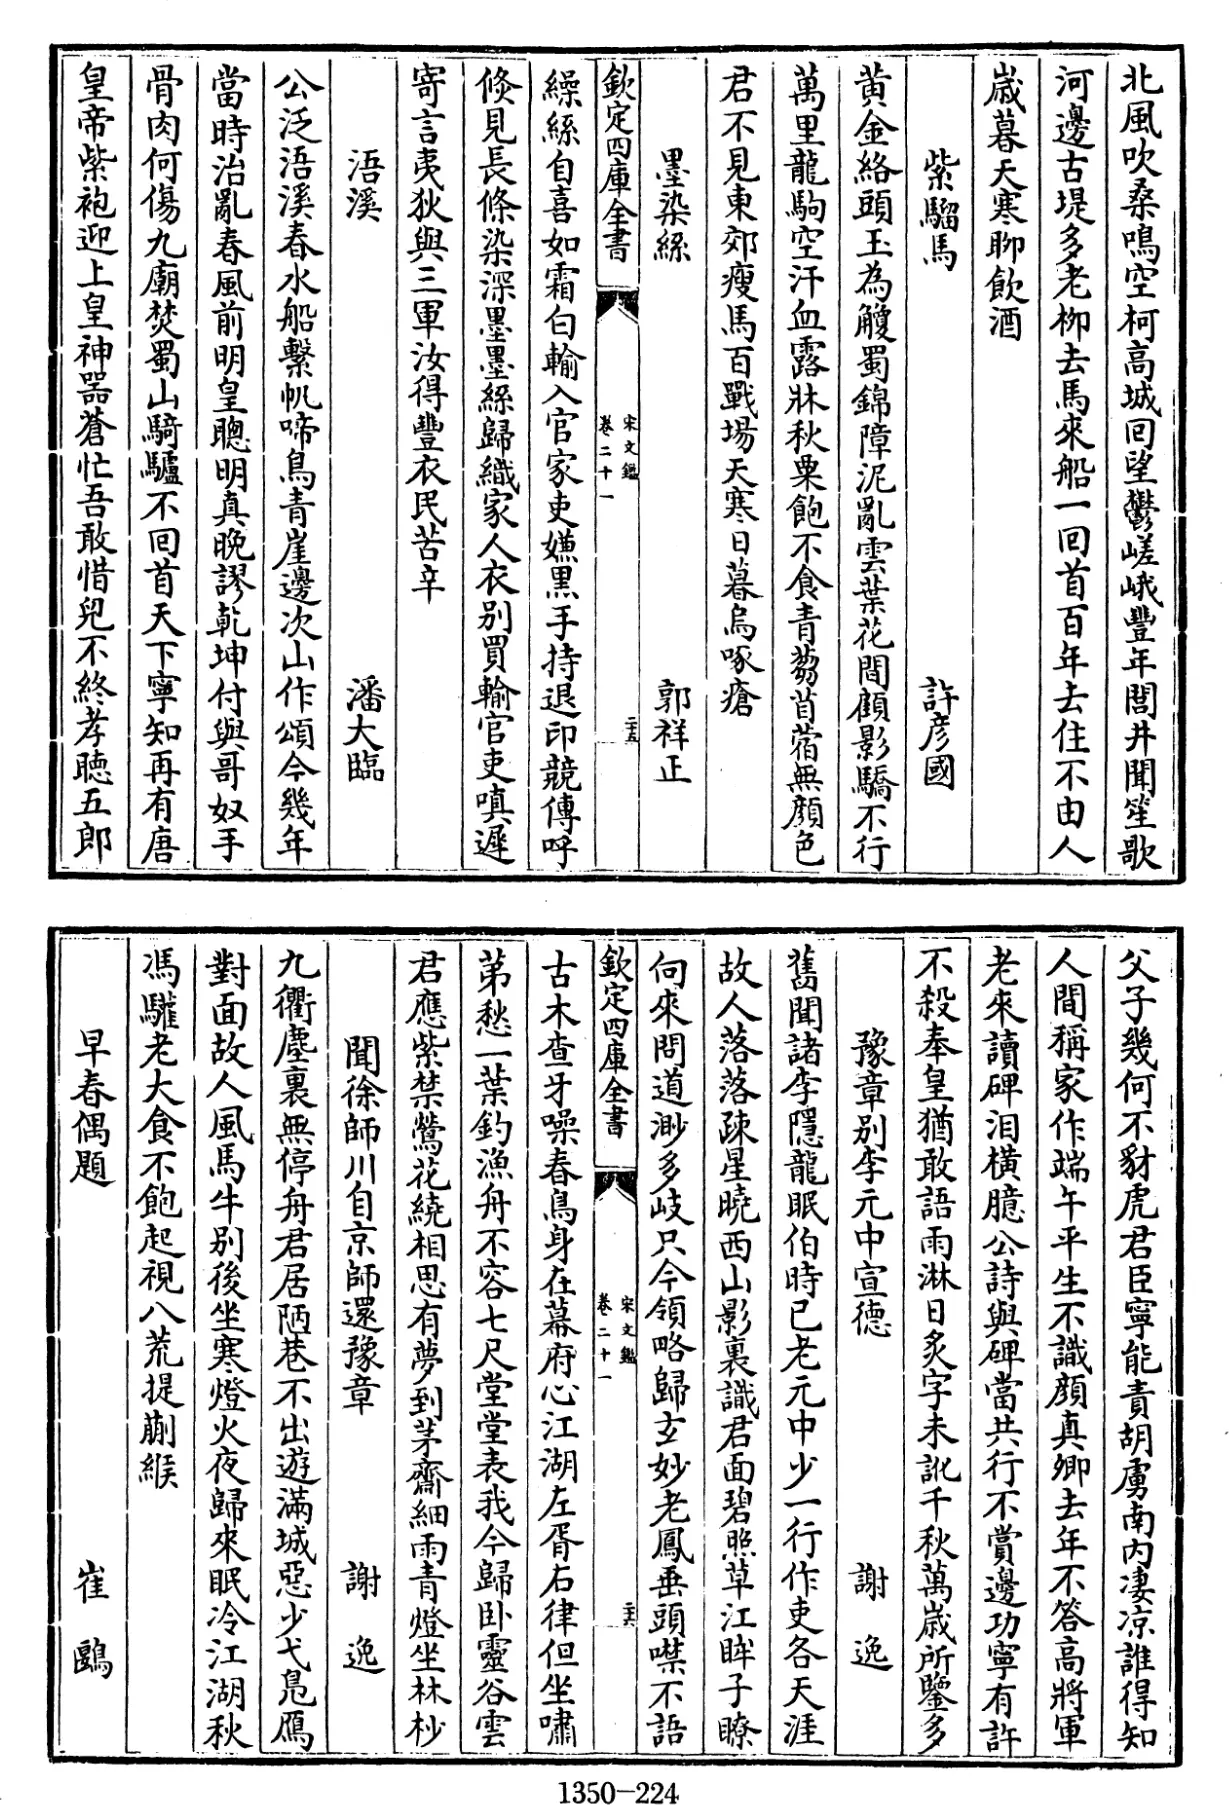 北風吹桑鳴空柯高城回望鬱嵯峨豐年閭井聞笙歌
河邊古堤多老栁去馬來船一回首百年去住不由人
嵗暮天寒聊飲酒
紫騮馬 許彦國
黄金絡頭玉為䩞蜀錦障泥亂雲葉花間顧影驕不行
萬里龍駒空汗血露牀秋粟飽不食青芻苜蓿無顔色
君不見東郊瘦馬百戰場天寒日暮烏啄瘡
墨染絲 郭祥正
欽定四庫全書 宋文鑑 卷二十一 二十五
繰絲自喜如霜白輸入官家吏嫌黒手持退印競傳呼
倐見長條染深墨墨絲歸織家人衣别買輸官吏嗔遲
寄言夷狄與三軍汝得豐衣民苦辛
浯溪 潘大臨
公泛浯溪春水船繫帆啼鳥青崖邊次山作頌今幾年
當時治亂春風前明皇聰明真晩謬乾坤付與哥奴手
骨肉何傷九廟焚蜀山騎驢不回首天下寧知再有唐
皇帝紫袍迎上皇神器蒼忙吾敢惜兒不終孝聴五郎
父子幾何不豺虎君臣寧能責胡虜南内凄凉誰得知
人間稱家作端午平生不識顔真卿去年不答高將軍
老來讀碑泪橫臆公詩與碑當共行不賞邊功寧有許
不殺奉皇猶敢語雨淋日炙字未訛千秋萬嵗所鑒多
豫章别李元中宣德 謝逸
舊聞諸李隱龍眠伯時已老元中少一行作吏各天涯
故人落落疎星曉西山影裏識君面碧照草江眸子瞭
向來問道渺多岐只今領略歸玄妙老鳳垂頭噤不語
欽定四庫全書 宋文鑑 卷二十一 二十六
古木查牙噪春鳥身在幕府心江湖左胥右律但坐嘯
第愁一葉釣漁舟不容七尺堂堂表我今歸卧靈谷雲
君應紫禁鶯花繞相思有夢到茅齋細雨青燈坐林杪
聞徐師川自京師還豫章 謝逸
九衢塵裏無停舟君居陋巷不出遊滿城惡少弋鳬鴈
對面故人風馬牛别後坐寒燈火夜歸來眠冷江湖秋
馮驩老大食不飽起視八荒提蒯緱
早春偶題 崔鷗
1350-224